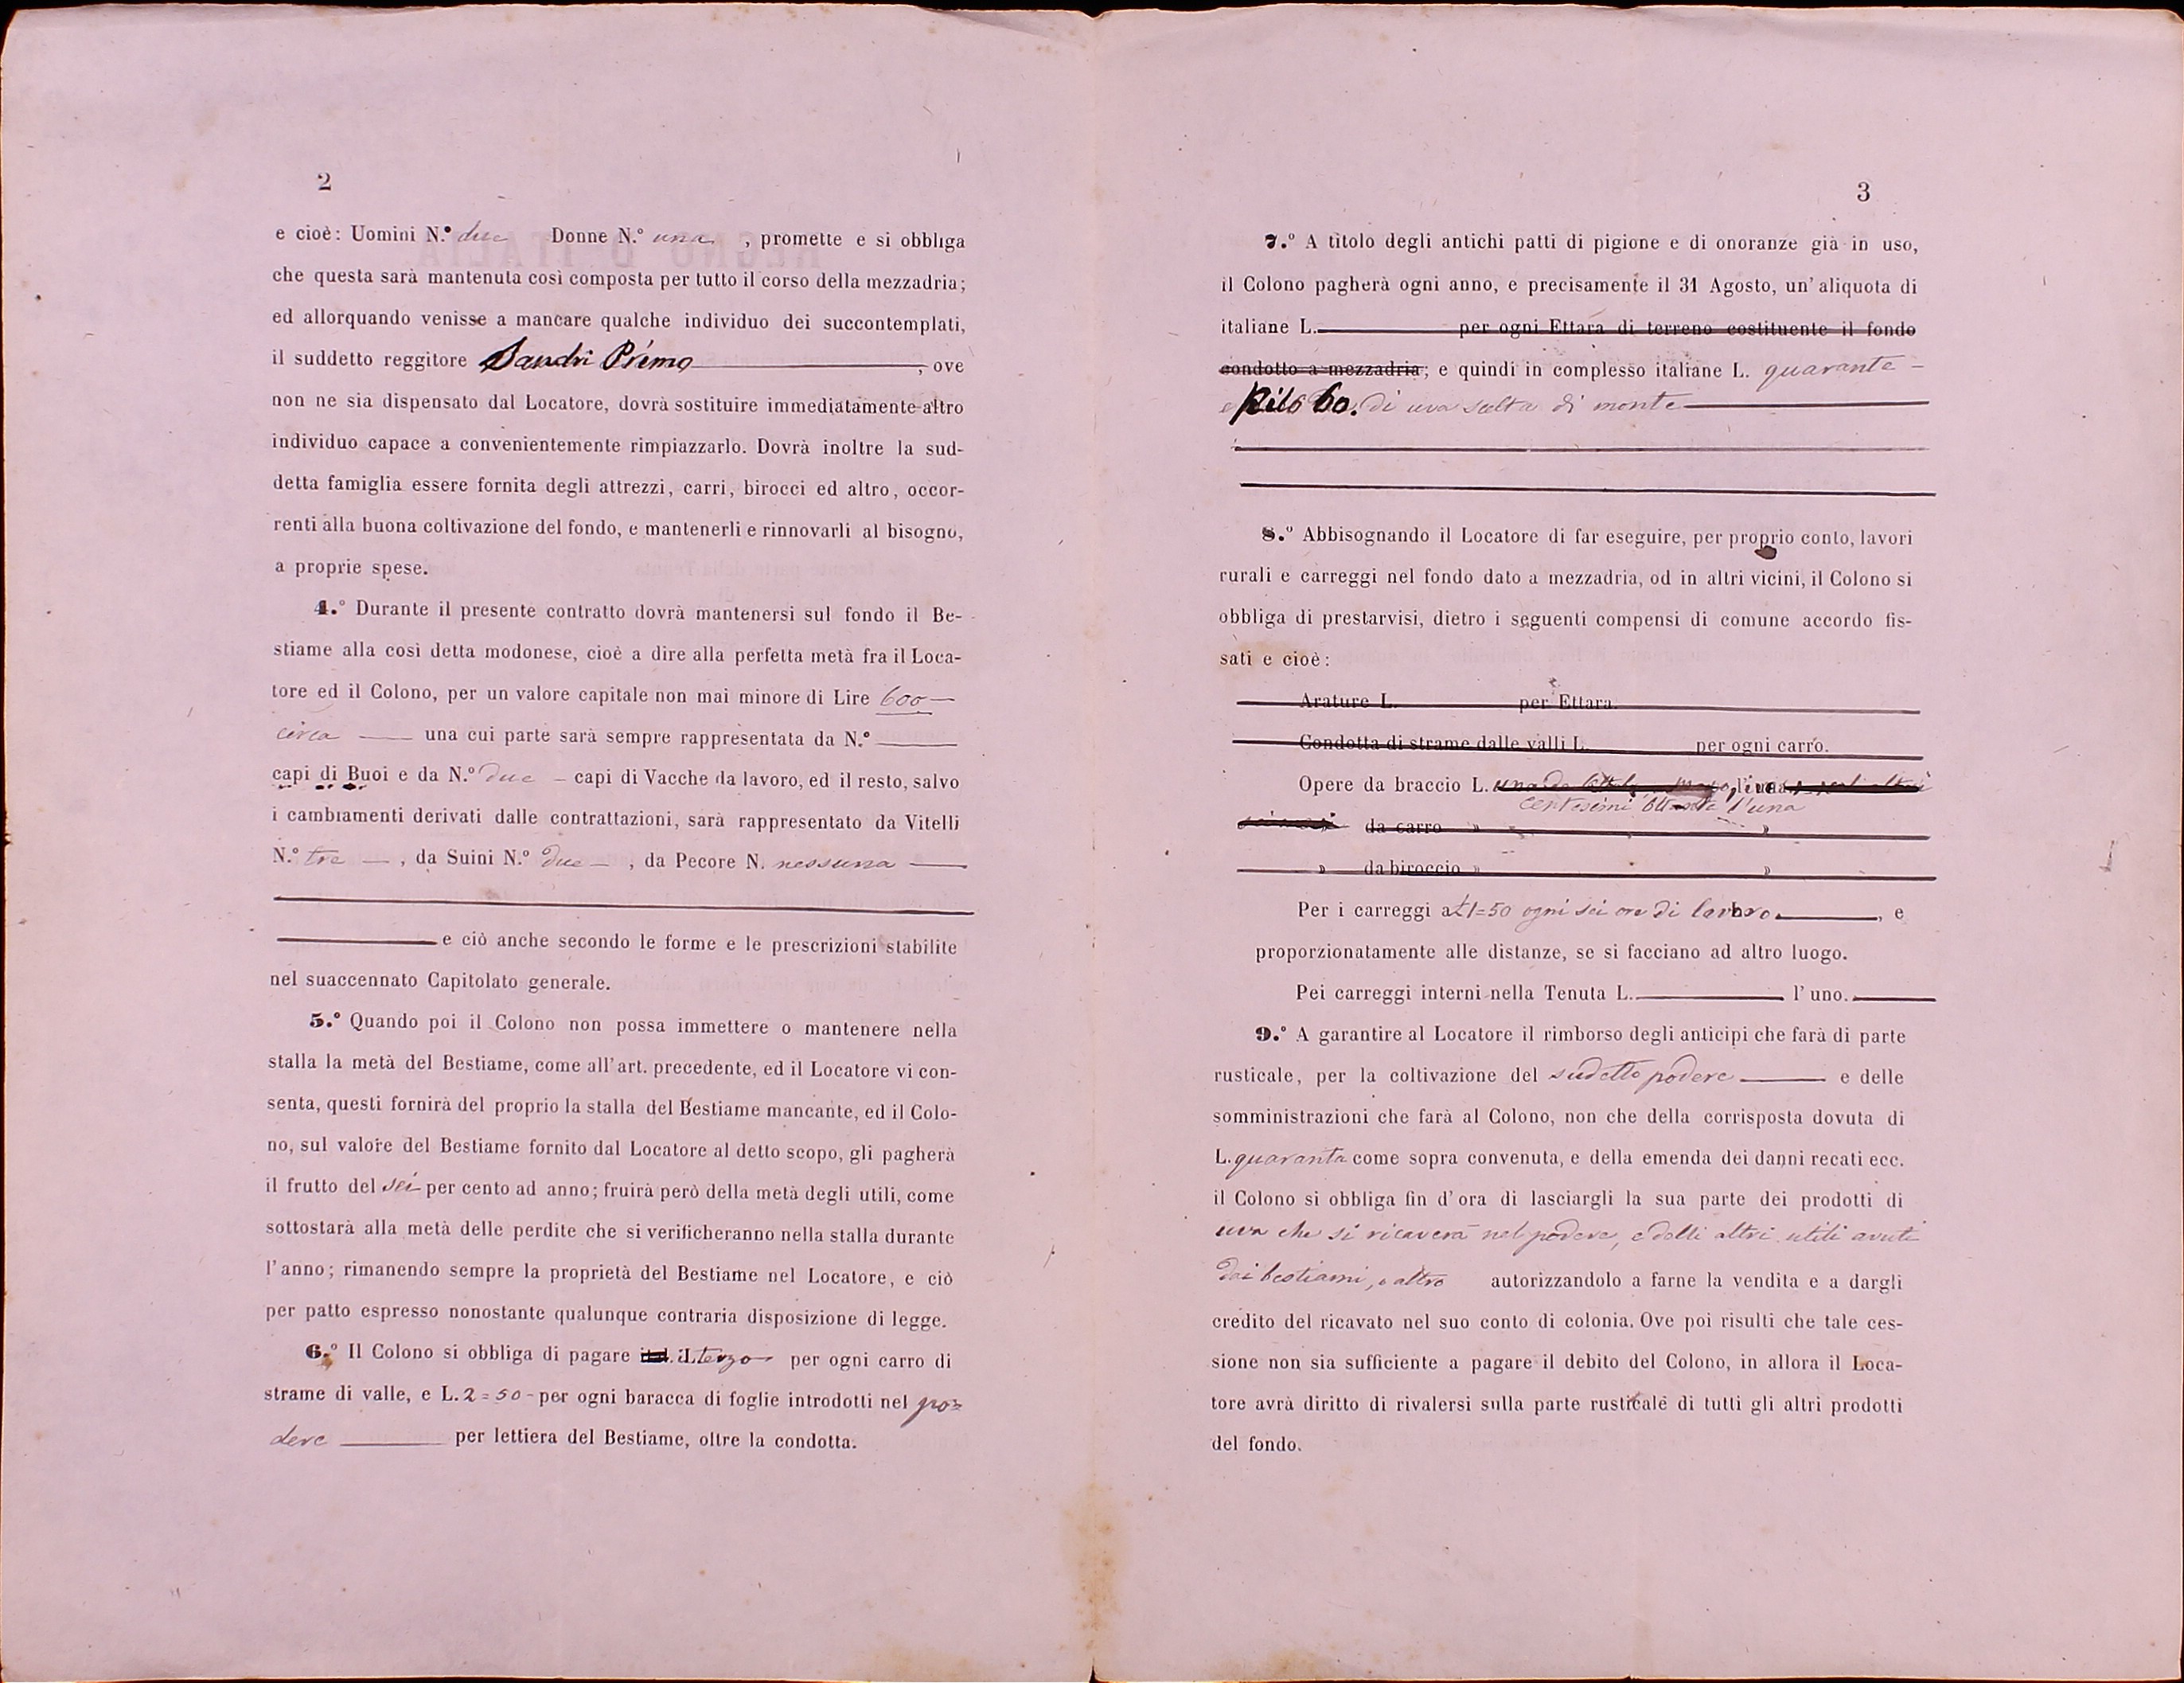 2
e cioè: Uomini N.° due Donne N.° una , promette e si obbliga
che questa sarà mantenuta così composta per tutto il corso della mezzadria;
ed allorquando venisse a mancare qualche individuo dei succontemplati,
il suddetto reggitore Sandri Primo , ove
non ne sia dispensato dal Locatore, dovrà sostituire immediatamente altro
individuo capace a convenientemente rimpiazzarlo. Dovrà inoltre la sud-
detta famiglia essere fornita degli attrezzi, carri, birocci ed altro, occor-
renti alla buona coltivazione del fondo, e mantenerli e rinnovarli al bisogno,
a proprie spese.
4.° Durante il presente contratto dovrà mantenersi sul fondo il Be-
stiame alla così detta modonese, cioè a dire alla perfetta metà fra il Loca-
tore ed il Colono, per un valore capitale non mai minore di Lire 600
circa una cui parte sarà sempre rappresentata da N.°
capi di Buoi e da N.° due capi di Vacche da lavoro, ed il resto, salvo
i cambiamenti derivati dalle contrattazioni, sarà rappresentato da Vitelli
N.° tre , da Suini N.° due , da Pecore N. nessuna
e ciò anche secondo le forme e le prescrizioni stabilite
nel suaccennato Capitolato generale.
5.° Quando poi il Colono non possa immettere o mantenere nella
stalla la metà del Bestiame, come all'art. precedente, ed il Locatore vi con-
senta, questi fornirà del proprio la stalla del Bestiame mancante, ed il Colo-
no, sul valore del Bestiame fornito dal Locatore al detto scopo, gli pagherà
il frutto del sei per cento ad anno; fruirà però della metà degli utili, come
sottostarà alla metà delle perdite che si verificheranno nella stalla durante
l'anno; rimanendo sempre la proprietà del Bestiame nel Locatore, e ciò
per patto espresso nonostante qualunque contraria disposizione di legge.
6.° Il Colono si obbliga di pagare il terzo per ogni carro di
strame di valle, e L. 2=50 - per ogni baracca di foglie introdotti nel po=
dere per lettiera del Bestiame, oltre la condotta.
3
7.° A titolo degli antichi patti di pigione e di onoranze già in uso,
il Colono pagherà ogni anno, e precisamente il 31 Agosto, un'aliquota di
italiane L. per ogni Ettara di terreno costituente il fondo
condotto a mezzadria; e quindi in complesso italiane L. quarante -
e Kilo 60. di uva scelta di monte
8.° Abbisognando il Locatore di far eseguire, per proprio conto, lavori
rurali e carreggi nel fondo dato a mezzadria, od in altri vicini, il Colono si
obbliga di prestarvisi, dietro i seguenti compensi di comune accordo fis-
sati e cioè:
Arature L. per Ettara.
Condotta di strame dalle valli L. per ogni carro.
Opere da braccio L. l'una
centesimi ottanta l'una
da carro » »
» da biroccio » »
Per i carreggi a £1=50 ogni sei ore di lavoro. , e
proporzionatamente alle distanze, se si facciano ad altro luogo.
Pei carreggi interni nella Tenuta L. l'uno.
9.° A garantire al Locatore il rimborso degli anticipi che farà di parte
rusticale, per la coltivazione del sudetto podere e delle
somministrazioni che farà al Colono, non che della corrisposta dovuta di
L. quaranta come sopra convenuta, e della emenda dei danni recati ecc.
il Colono si obbliga fin d'ora di lasciargli la sua parte dei prodotti di
uva che si ricaverà nel podere, e delli altri utili avuti
dai bestiami, e altro autorizzandolo a farne la vendita e a dargli
credito del ricavato nel suo conto di colonia. Ove poi risulti che tale ces-
sione non sia sufficiente a pagare il debito del Colono, in allora il Loca-
tore avrà diritto di rivalersi sulla parte rusticale di tutti gli altri prodotti
del fondo.